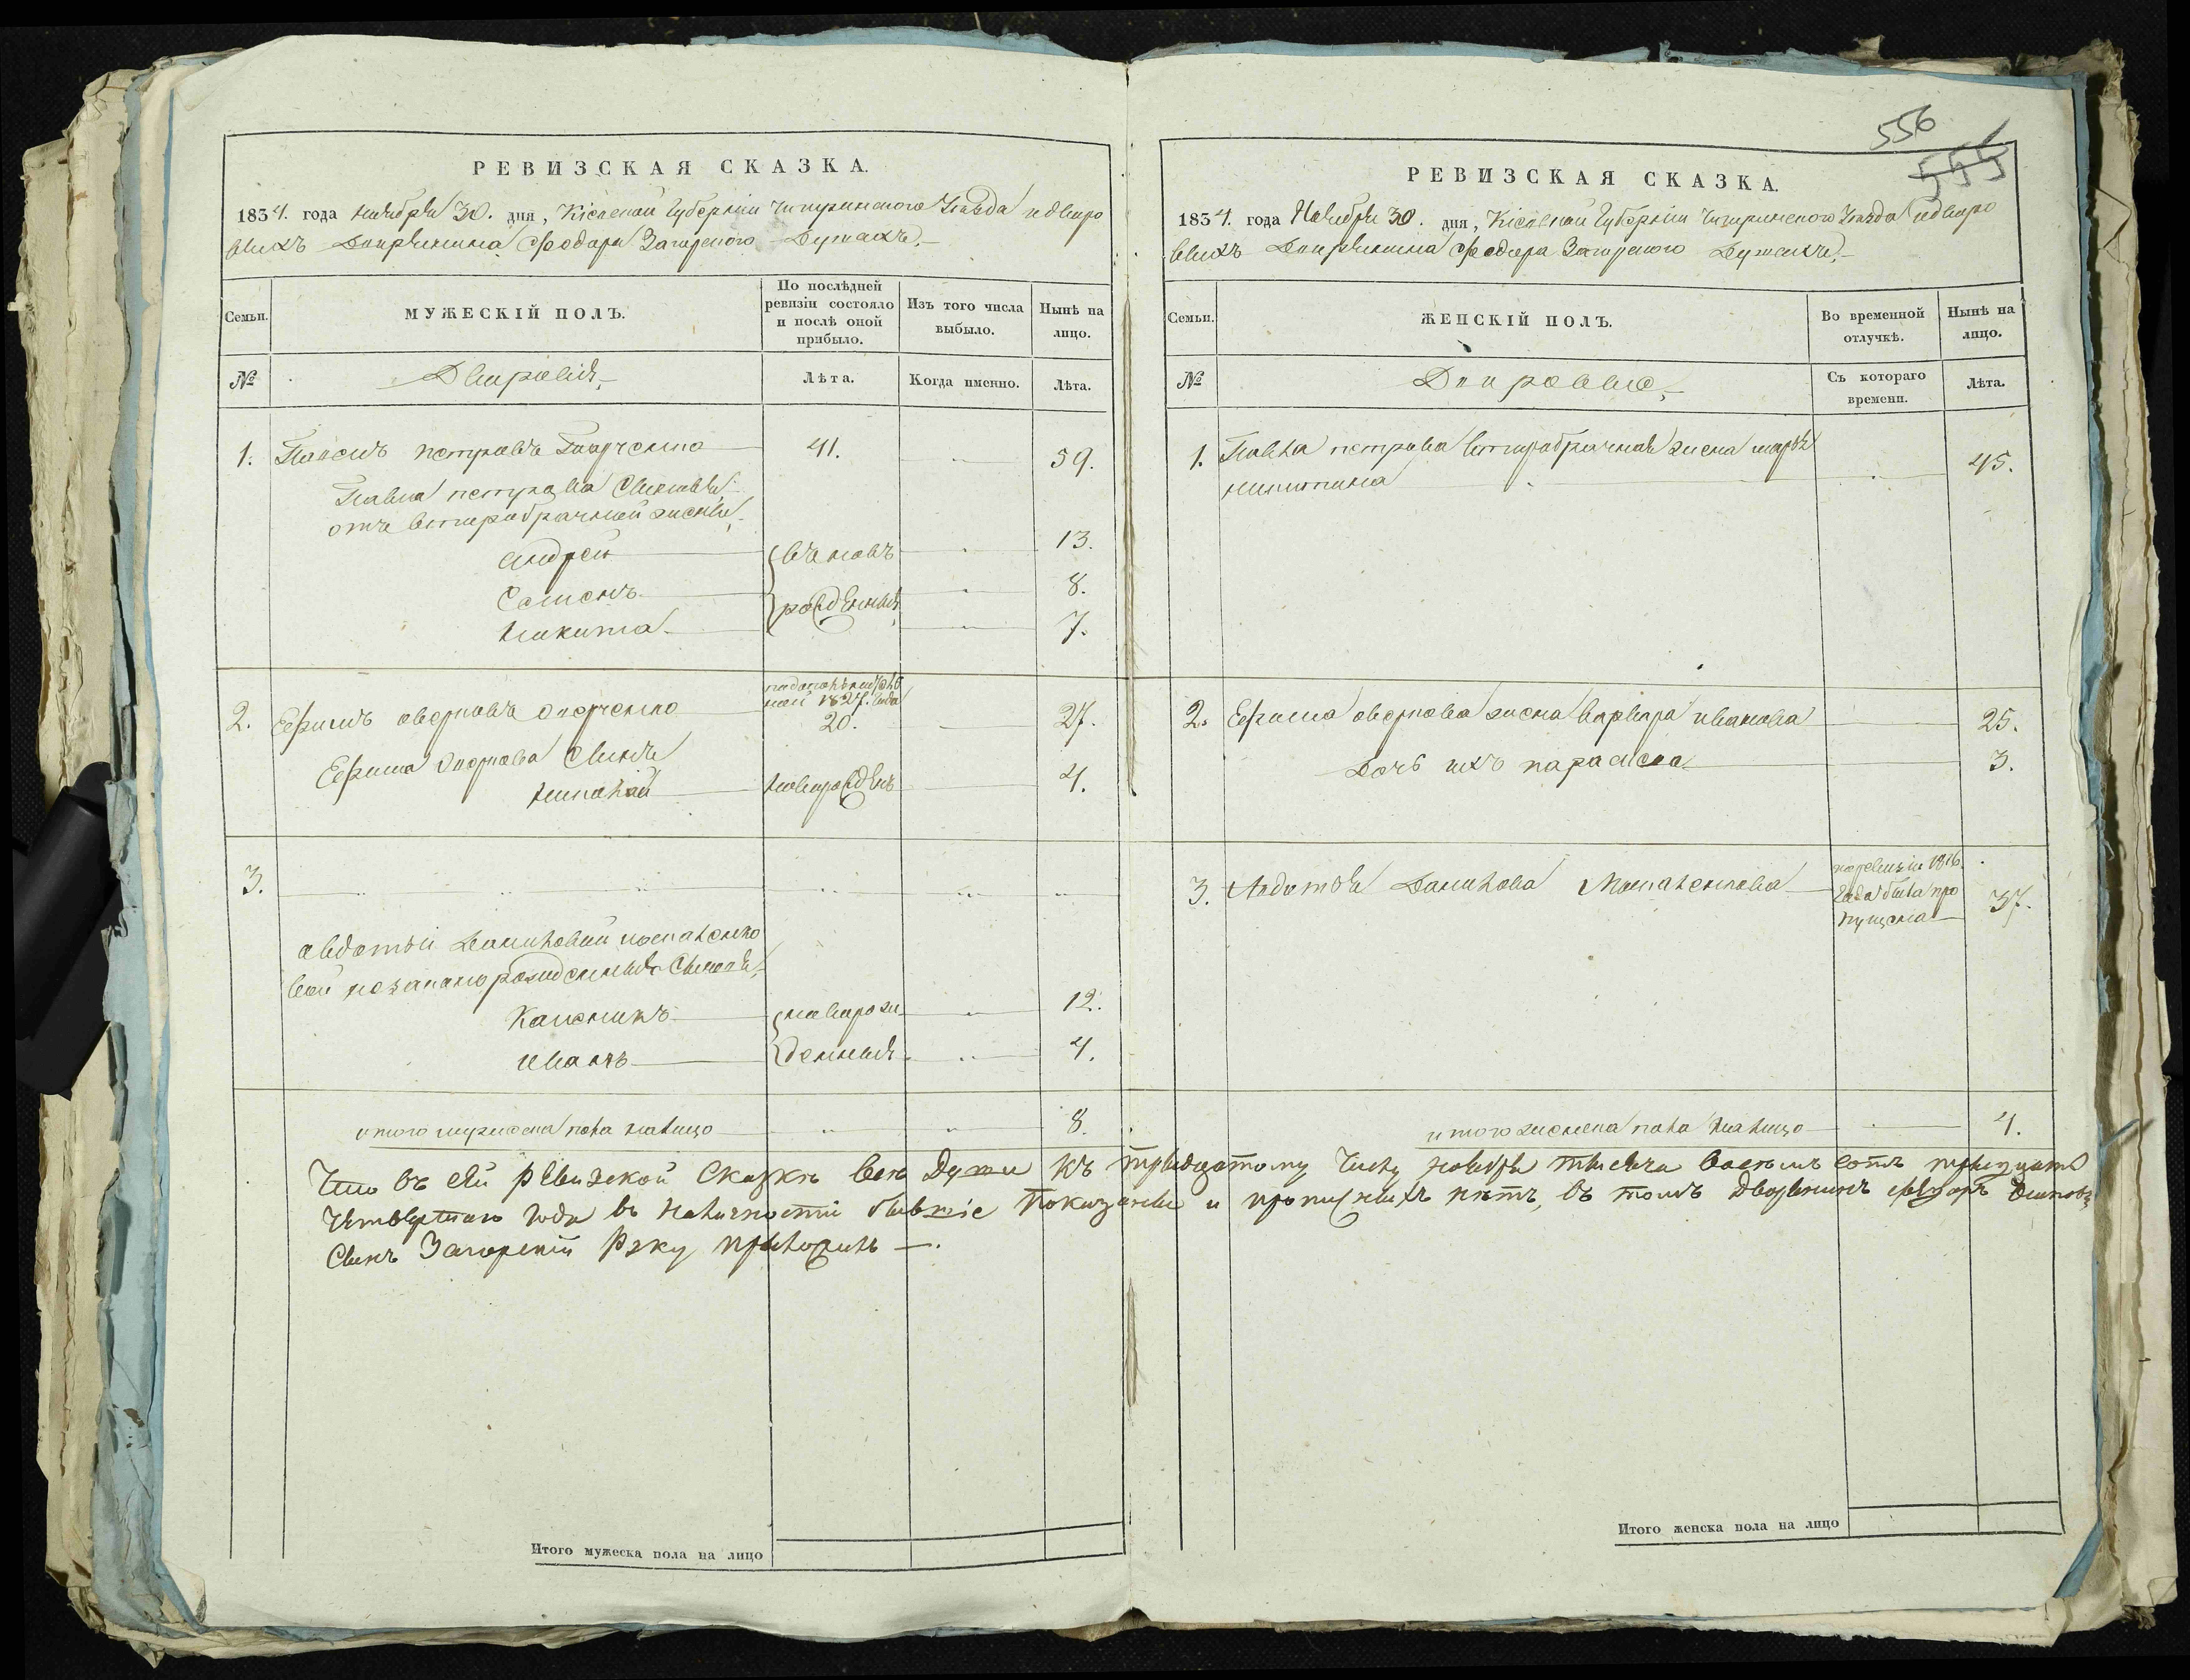 556
555
РЕВИЗСКАЯ СКАЗКА.
1834. года ноября 30. дня, Кіевской Губерніи Чигиринского Уезда одворо
выхъ Дворянина Федора Загорского Душахъ.
Семьи.
МУЖЕСКІЙ ПОЛЪ.
По послѣдней ревизіи состояло и послѣ оной прибыло.
Изъ того числа выбыло.
Нынѣ на лицо.
№
Дворовія,
Лѣта.
Когда именно.
Лѣта.
1. Петровъ 41. 59.
Павла петрова Сыновья
отъ второбрачной жены,
андрей 13.
Семенъ 8.
никита 7.
вновь
рожденныя
2. Ефимъ 20. 27.
1827. года
Ефима Сынъ
николай новорожденъ 4.
3.
авдотьи Даниловой
вой незаконорожденныя Сыновья,
Каленикъ 12.
иванъ 4.
новорож
денныя
итого мужеска пола налицо 8.
РЕВИЗСКАЯ СКАЗКА.
1834. года Ноября 30. дня, Кіевской Губерніи Чигиринского Уезда одворо
выхъ Дворянина Федора Загорского Душахъ,
Семьи.
ЖЕНСКІЙ ПОЛЪ.
Во временной отлучкѣ.
Нынѣ на лицо.
№
Дворовыя,
Съ котораго времени.
Лѣта.
1. Павла петрова второбрачная жена марья
никитина 45.
2. Ефима жена варвара иванова 25.
Дочь ихъ параска 3.
3. Авдотья Данилова 37.
поревизіи 1816.
года была про
пущена
итого женска пола налицо 4.
Что въ сей ревизской Сказкѣ все души къ тридцатому Числу ноября тысяча восемь сотъ тридцать
четвертаго года въ наличности бывшіе показаны и прописныхъ нѣтъ, въ томъ дворянинъ федоръ
Сынъ Загорскій Руку приложилъ
Итого мужеска пола на лицо
Итого женска пола на лицо